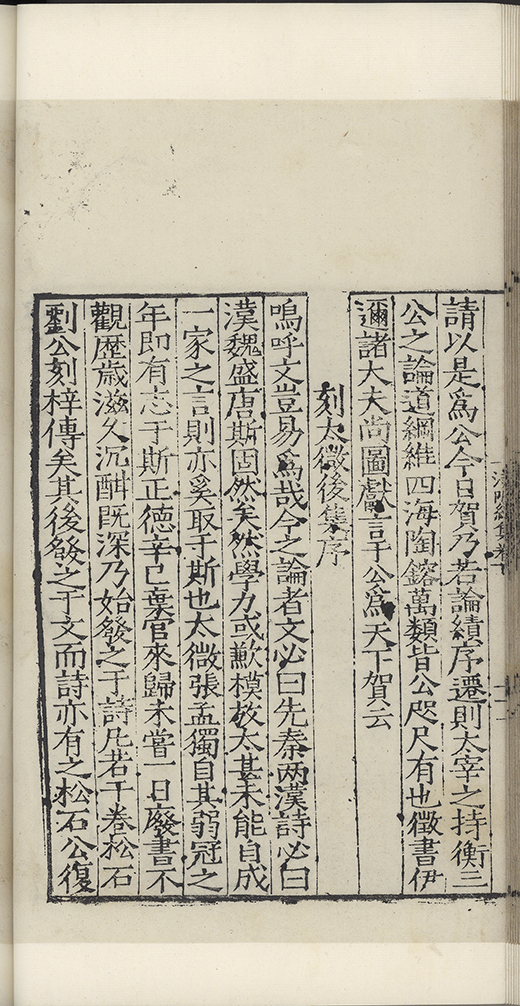 請以是爲公今日賀乃若論績序遷則太宰之持衡三
公之論道綱維四海陶鎔萬類皆公咫尺有也徵書伊
邇諸大夫尚圖獻言于公爲天下賀云
刻太微後集序
嗚呼文豈易爲哉今之論者文必曰先秦两漢詩必曰
漢魏盛唐斯固然矣然學力或歉模放太甚未能自成
一家之言則亦奚取于斯也太微張孟獨自其弱冠之
年即有志于斯正德辛巳棄官來歸未嘗一日廢書不
觀歷歲滋久沉酣既深乃始發之于詩凡若干卷松石
劉公刻梓傳矣其後發之于文而詩亦有之松石公復